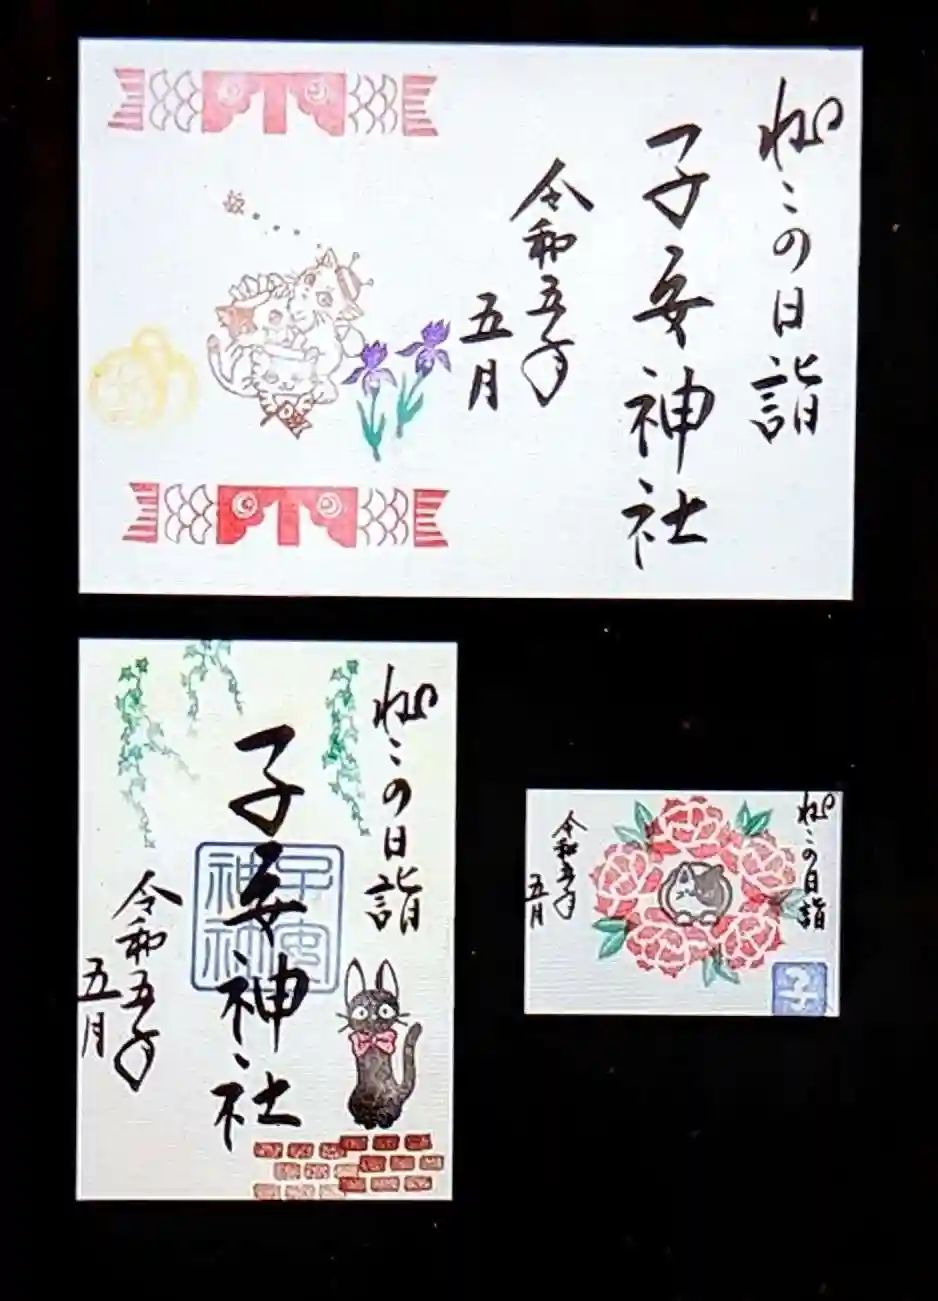 ねこの日詣
子安神社
令和五年
五月
ねこの日詣
子安神社
子安
神社
令和五年
五月
ねこの日詣
令和五年
五月